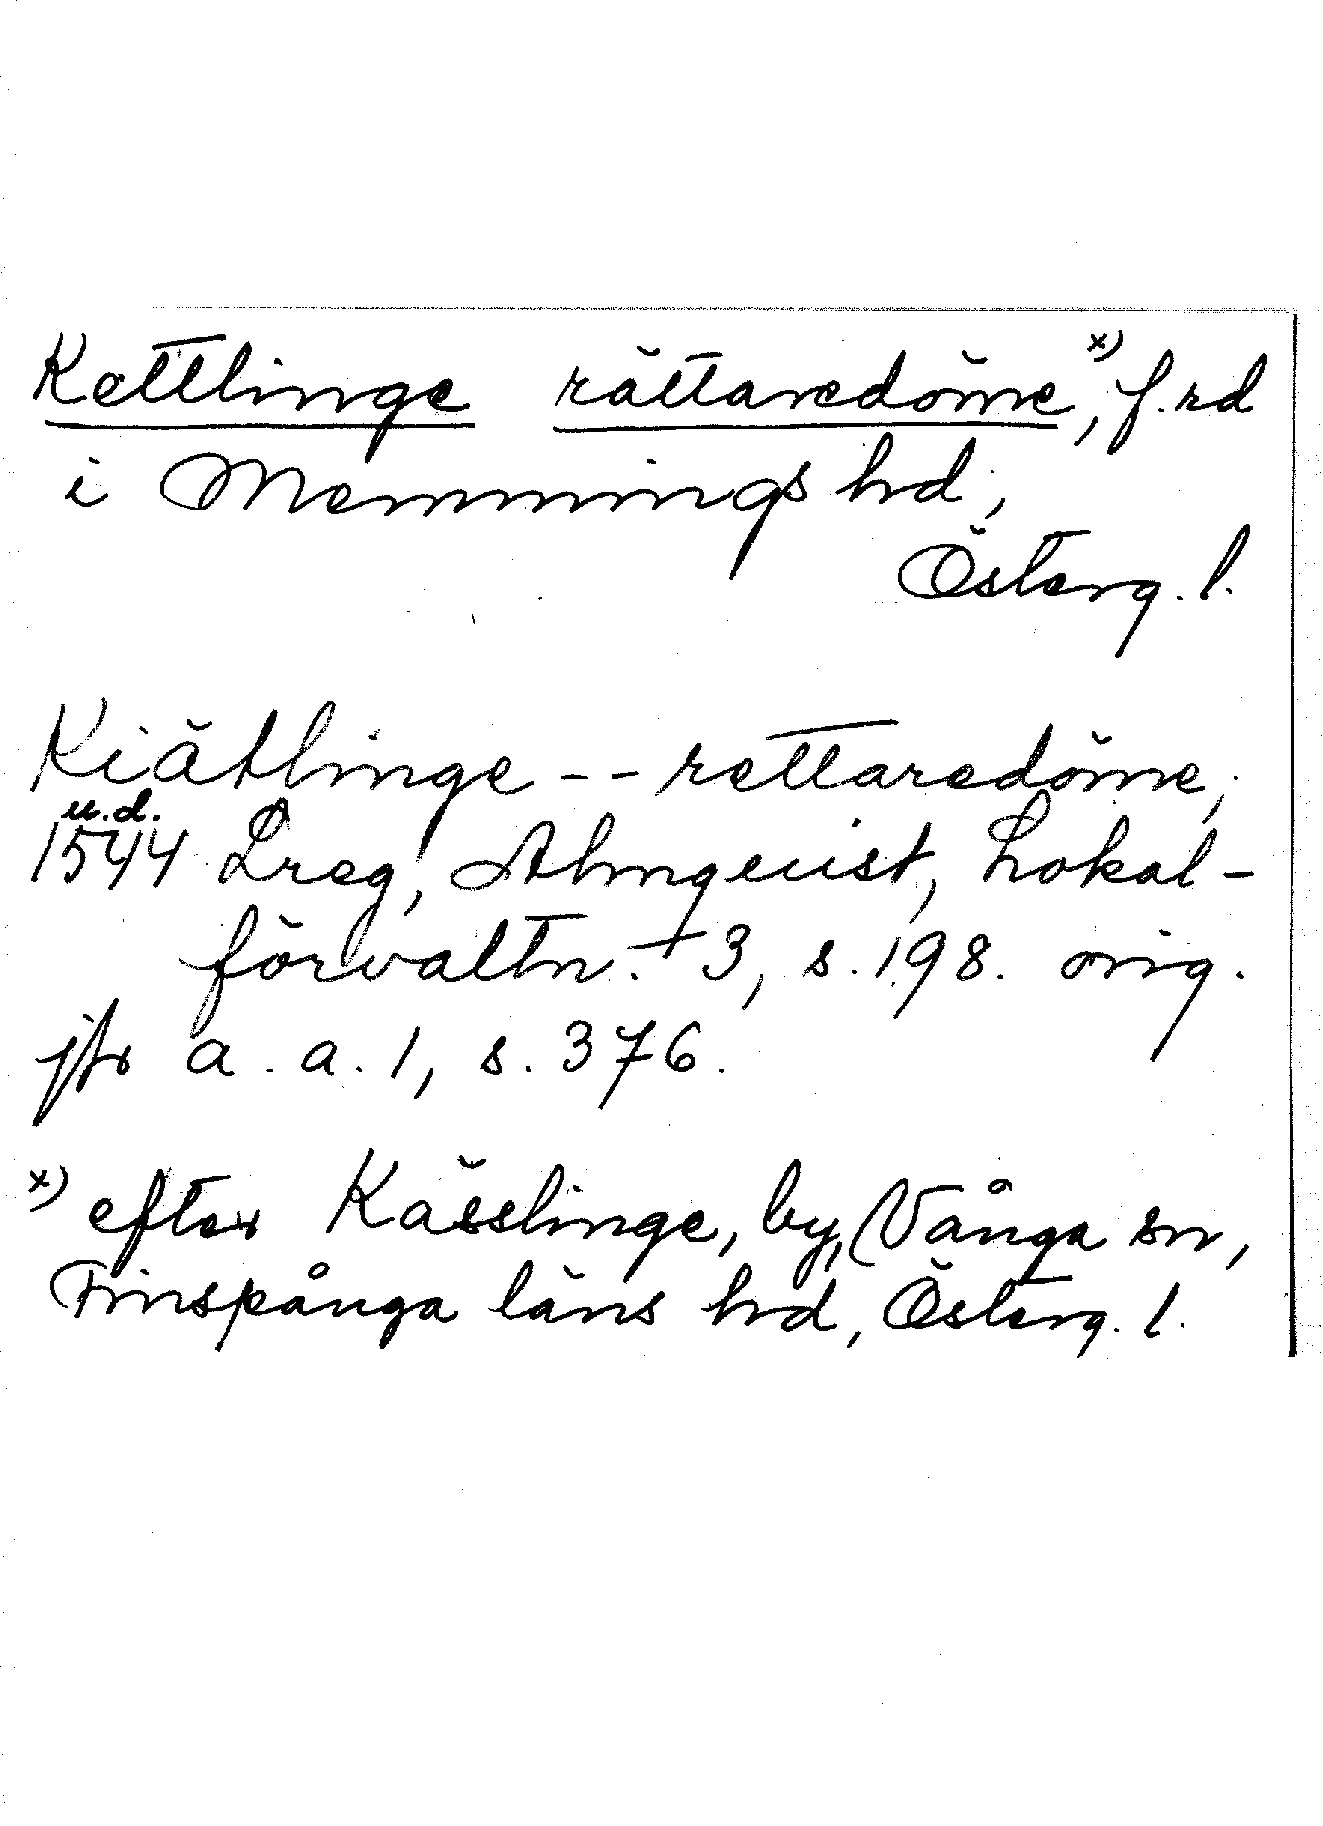 Kettlinge rättaredöme,ˣ⁾ f.rd
i Memmings hrd,
Österg. l.
Kiätlinge -- rettaredöme,
u.d.
1544 Lreg, Almqvist, Lokal-
förvaltn. + 3, s. 198. orig.
jfr a. a. 1, s. 376.
ˣ⁾ efter Kässlinge, by, Vånga sn,
Finspånga läns hrd, Österg. l.